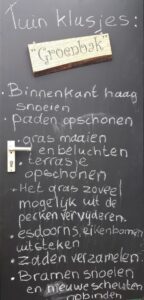 Tuin klusjes:
"Groenbak"
• Binnenkant haag
snoeien
• paden opschonen
• gras maaien
en beluchten
• terrasje
opschonen
• Het gras zoveel
mogelijk uit de
perken verwijderen.
• esdoorns, eikenbomen
uitsteken
• zaden verzamelen!
• Bramen snoeien
en nieuwe scheuten
opbinden